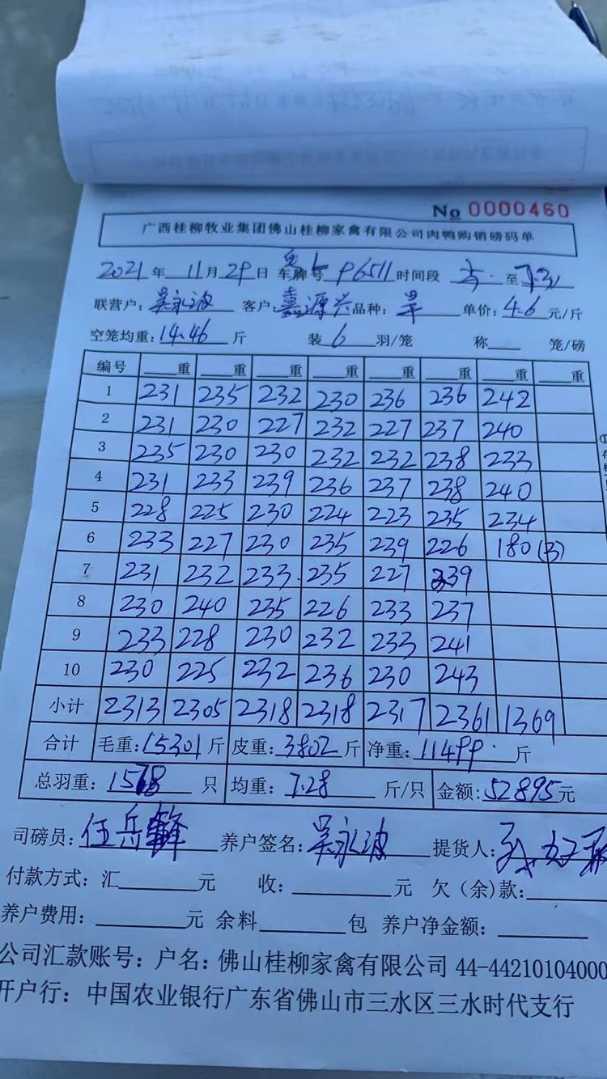 No 0000460
广西桂柳牧业集团佛山桂柳家禽有限公司肉鸭购销磅码单
2021年11月29日 车牌号 P6511 时间段 至
联营户:吴永波 客户:嘉源兴 品种: 单价:4.6元/斤
空笼均重:14.46斤 装6羽/笼 称 笼/磅
编号 重 重 重 重 重 重 重 重
1 231 235 232 230 236 236 242
2 231 230 227 232 227 237 240
3 235 230 230 232 232 238 233
4 231 233 239 236 237 238 240
5 228 225 230 224 223 235 234
6 233 227 230 235 239 226 180(3)
7 231 232 233 235 227 239
8 230 240 235 226 233 237
9 233 228 230 232 233 241
10 230 225 232 236 230 243
小计 2313 2305 2318 2318 2317 2361 1369
合计 毛重:15301斤 皮重:3802斤 净重:11499斤
总羽重: 只 均重:7.28斤/只 金额:52895元
司磅员:伍岳峰 养户签名:吴永波 提货人:
付款方式:汇 元 收: 元 欠(余)款:
养户费用: 元 余料 包 养户净金额:
公司汇款账号:户名:佛山桂柳家禽有限公司 44-44210104000
开户行:中国农业银行广东省佛山市三水区三水时代支行